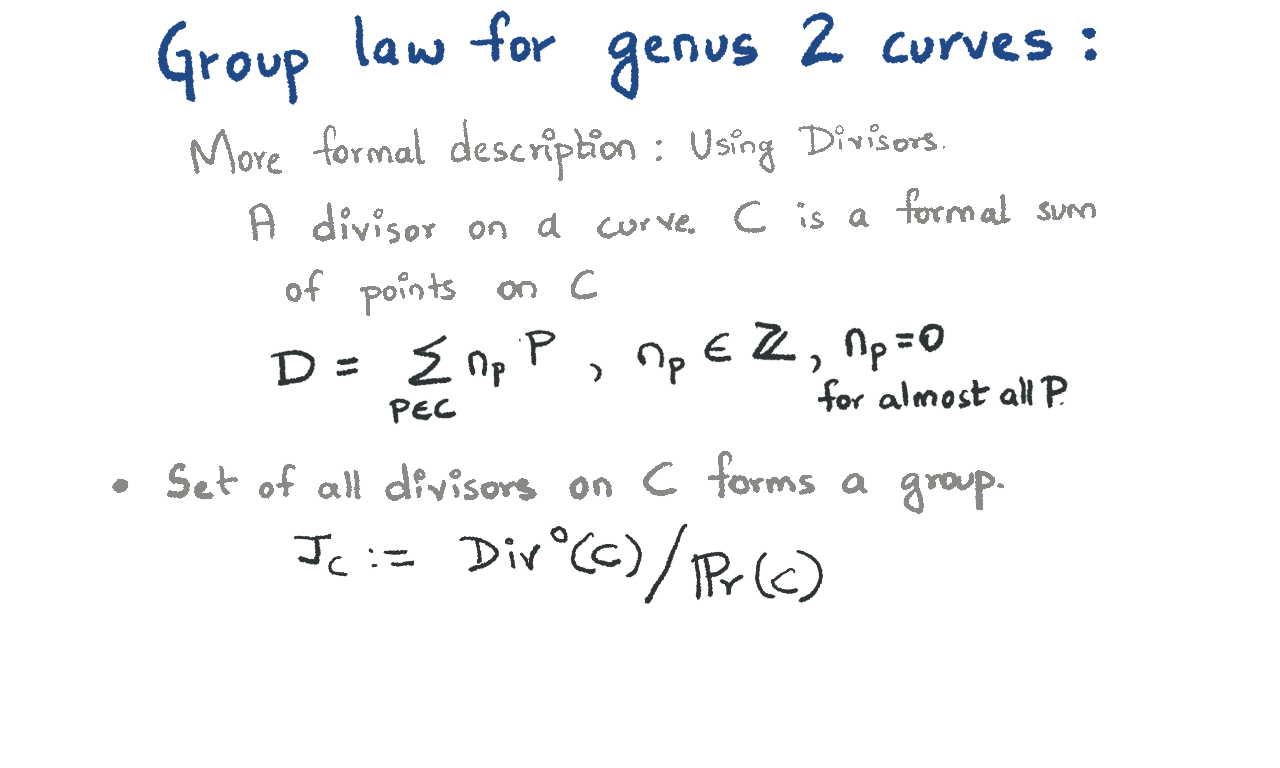 Group law for genus 2 curves :
More formal description : Using Divisors.
A divisor on a curve C is a formal sum
of points on C
D = ∑ n_P P , n_P ∈ ℤ, n_P = 0
P∈C
for almost all P.
• Set of all divisors on C forms a group.
J_C := Div⁰(C) / ℙr(C)